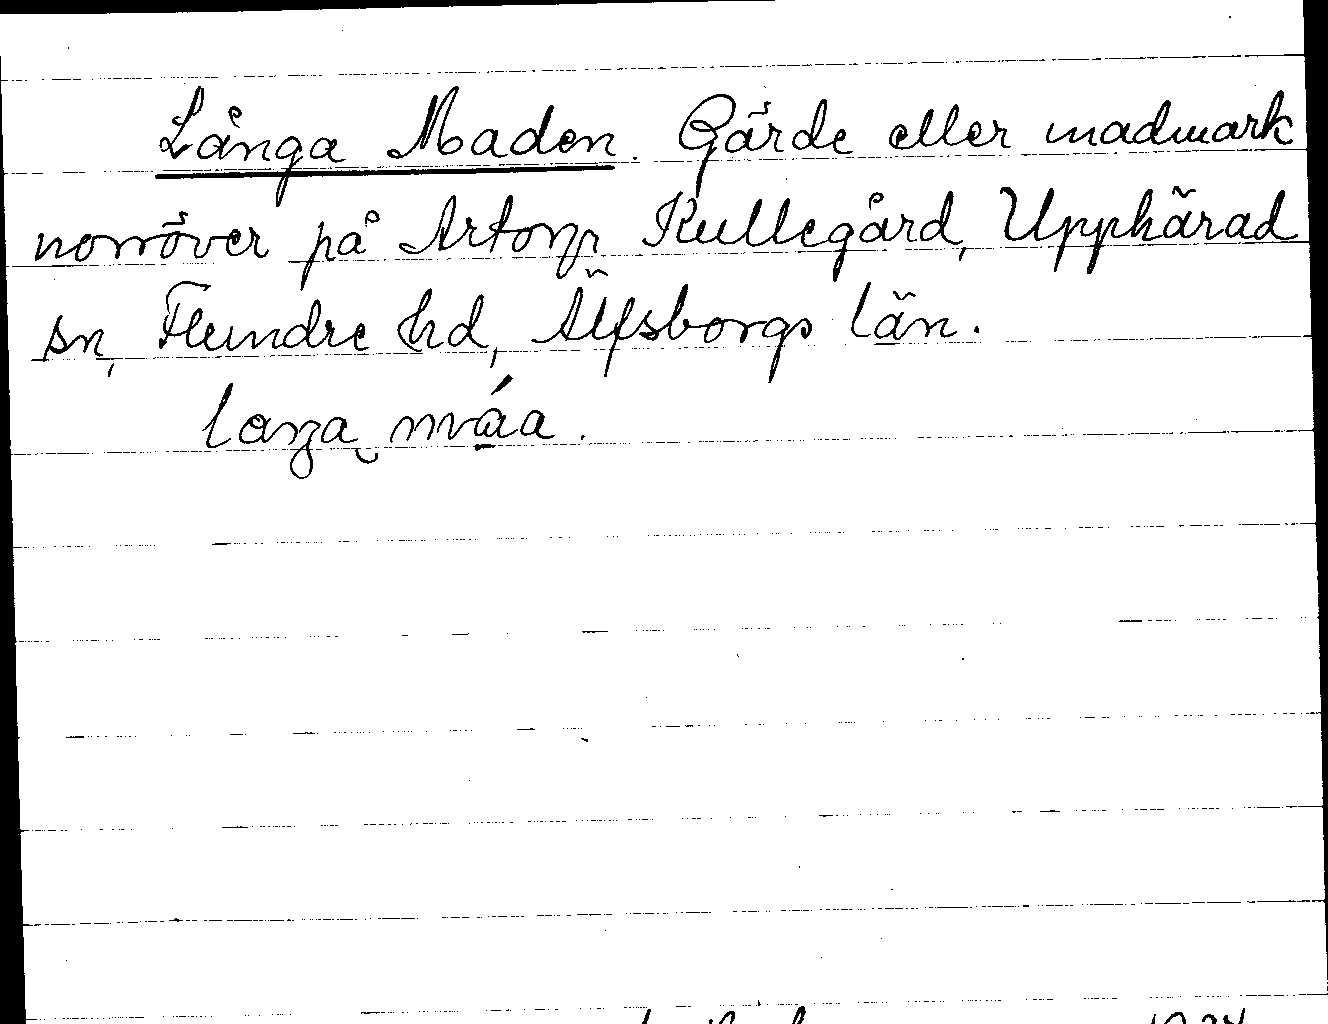 Långa Maden. Gärde eller madmark
norröver på Artorp Kullegård, Upphärad
sn, Flundre hd, Älfsborgs län.